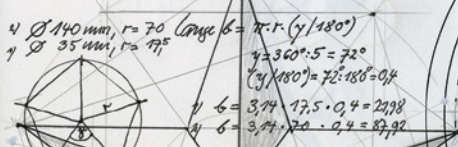 x) Ø 140 mm, r = 70 Länge b = π.r.(y/180°)
y) Ø 35 mm, r = 17,5
y = 360° : 5 = 72°
(y/180°) = 72°:180° = 0,4
y) b = 3,14 · 17,5 · 0,4 = 21,98
x) b = 3,14 · 70 · 0,4 = 87,92
r
γ